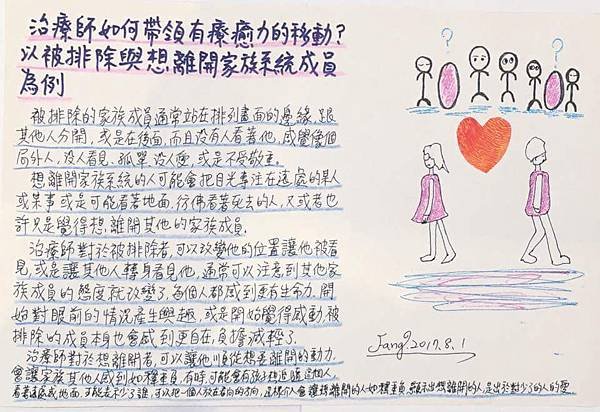 治療師如何帶領有療癒力的移動?
以被排除與想離開家族系統成員
為例
被排除的家族成員通常站在排列畫面的邊緣,跟
其他人分開,或是在後面,而且沒有人看著他,感覺像個
局外人,沒人看見,孤單,沒人要,或是不受敬重。
想離開家族系統的人可能會把目光專注在遠處的某人
或某事或是可能看著地面,彷彿看著死去的人,又或者也
許只是覺得想離開其他的家族成員。
治療師對於被排除者,可以改變他的位置讓他被看
見,或是讓其他人轉身看見他,通常可以注意到其他家
族成員的態度就改變了,每個人都感到更有生命力,開
始對眼前的情況產生興趣,或是開始覺得感動,被
排除的成員本身也會感到更自在,負擔減輕了。
治療師對於想離開者,可以讓他順從想要離開的動力,
會讓家族其他人感到如釋重負,有時,可能會有孩子想追隨這個人,
看著遠處或地面,可能是少了誰,可以把一個人放在看向的方向,這樣介入會讓想離開的人如釋重負,顯示出想離開的人,是出於對少了的人的愛
? ?
Jang 2017.8.1